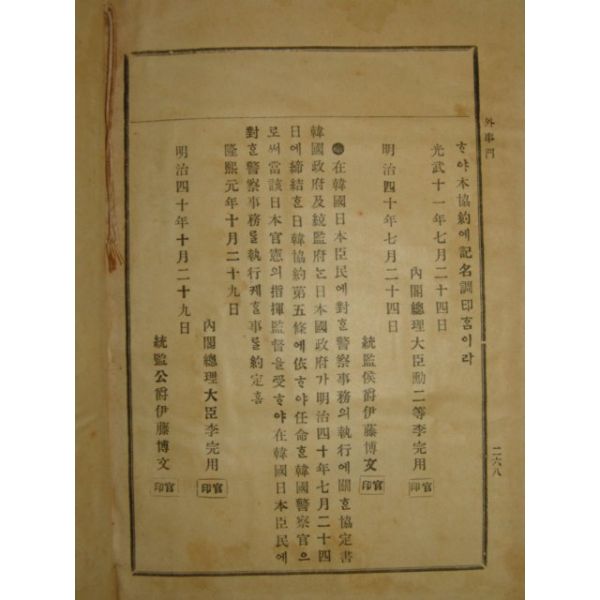 外事門
二六八
ᄒᆞ야本協約에記名調印홈이라
光武十一年七月二十四日
內閣總理大臣勳二等李完用 官印
明治四十年七月二十四日
統監侯爵伊藤博文 官印
●在韓國日本臣民에對ᄒᆞᆫ警察事務의執行에關ᄒᆞᆫ協定書
韓國政府及統監府ᄂᆞᆫ日本國政府가明治四十年七月二十四
日에締結ᄒᆞᆫ日韓協約第五條에依ᄒᆞ야任命ᄒᆞᆫ韓國警察官으
로써當該日本官憲의指揮監督을受ᄒᆞ야在韓國日本臣民에
對ᄒᆞᆫ警察事務를執行케ᄒᆞᆯ事를約定홈
隆熙元年十月二十九日
內閣總理大臣李完用 官印
明治四十年十月二十九日
統監公爵伊藤博文 官印